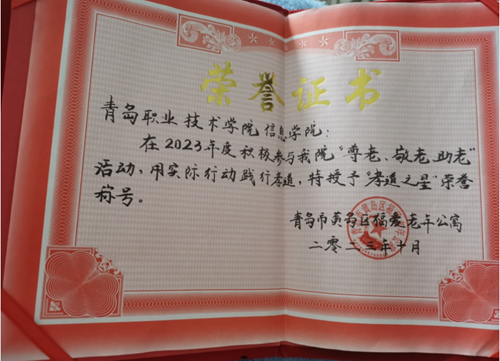 荣誉证书
青岛职业技术学院信息学院:
在2023年度积极参与我院“尊老、敬老、助老”
活动,用实际行动践行孝道,特授予“孝道之星”荣誉
称号。
青岛市黄岛区福爱老年公寓
二〇二三年十月